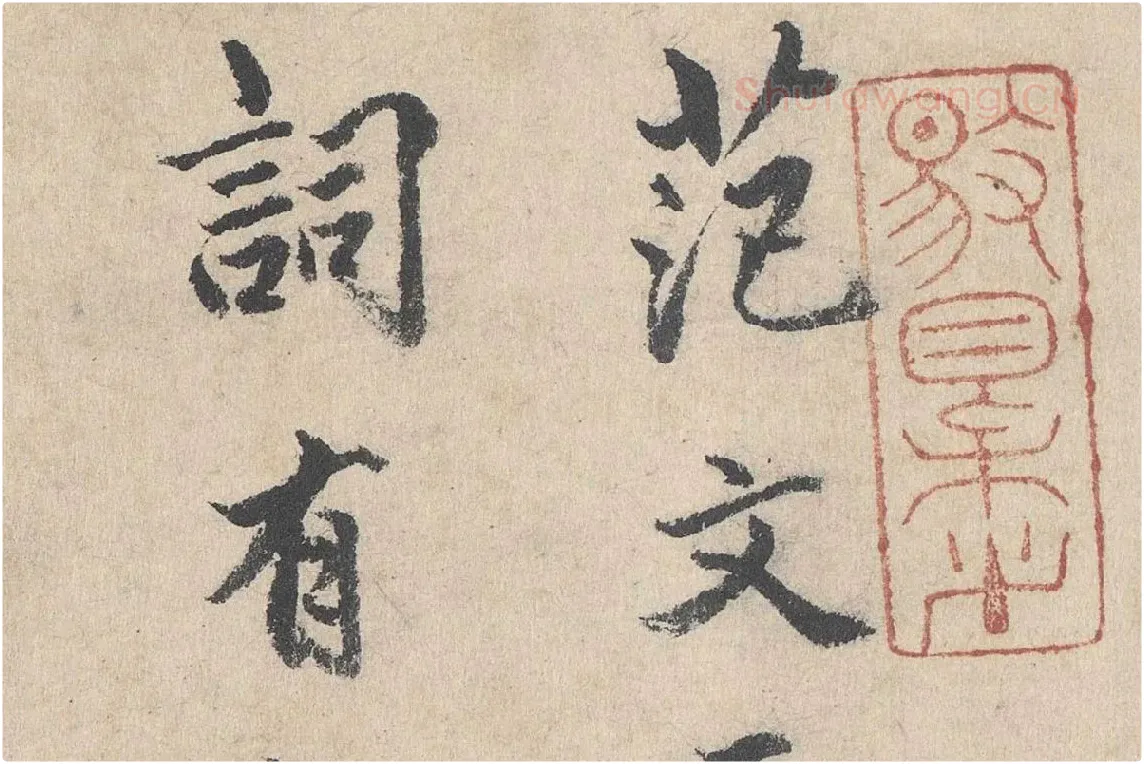 范文
詞有
Shufawang.cn